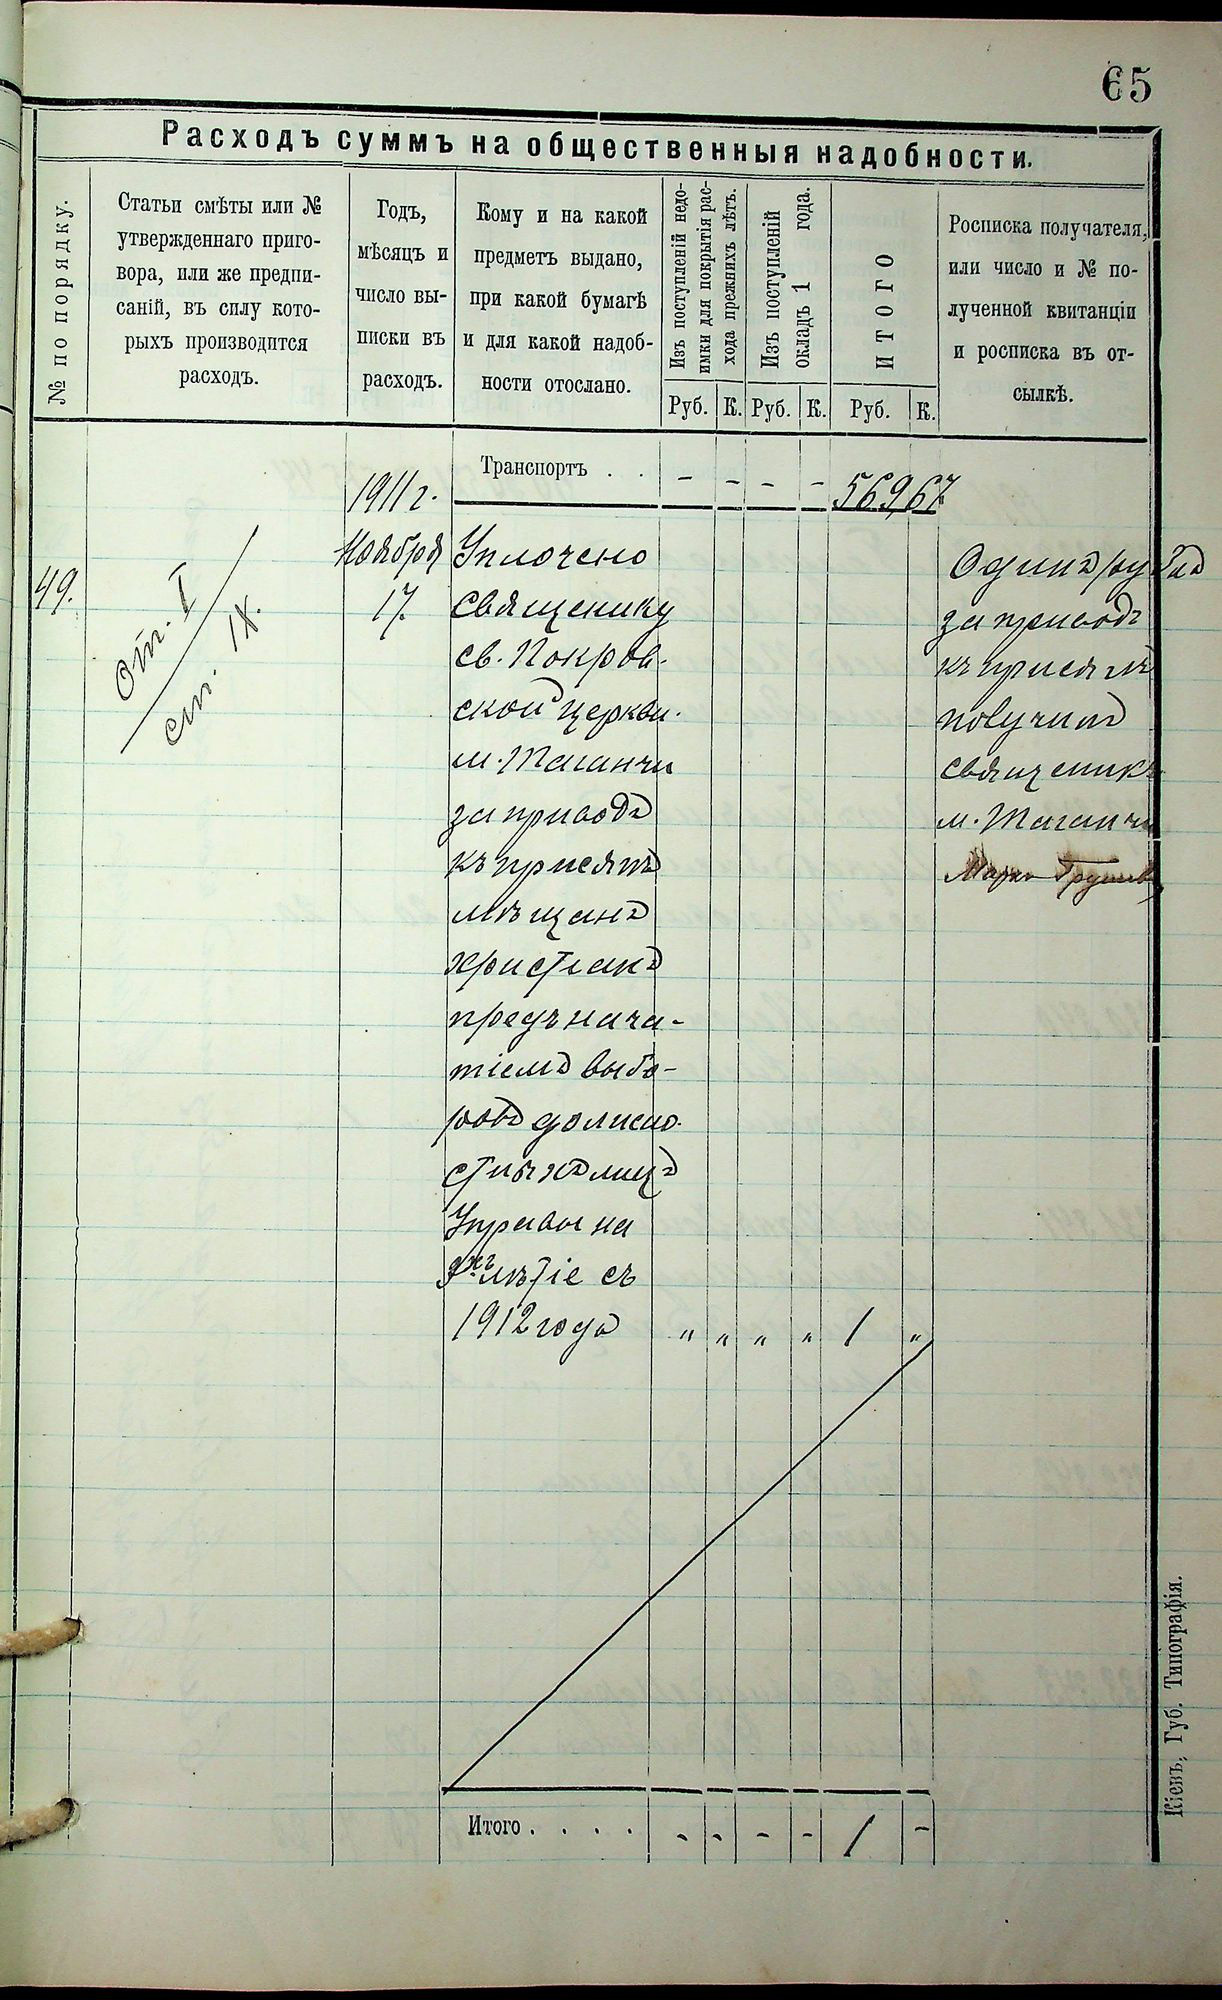 65
Расходъ суммъ на общественныя надобности.
№ по порядку.
Статьи смѣты или №
утвержденнаго приго-
вора, или же предпи-
саній, въ силу кото-
рыхъ производится
расходъ.
Годъ,
мѣсяцъ и
число вы-
писки въ
расходъ.
Кому и на какой
предметъ выдано,
при какой бумагѣ
и для какой надоб-
ности отослано.
Изъ поступленій недо-
имки для покрытія рас-
хода прежнихъ лѣтъ.
Изъ поступленій
окладъ 1 года.
ИТОГО
Росписка получателя,
или число и № по-
лученной квитанціи
и росписка въ от-
сылкѣ.
Руб. К. Руб. К. Руб. К.
Транспортъ . . - - - - 569 67
1911 г.
Ноября
17.
49.
от. I
ст. IX.
Уплочено
священику
св. Покров-
ской церкви
м. Таганчи
за приводъ
къ присягѣ
мѣщанъ
христіанъ
предъ нача-
тіемъ выбо-
ровъ должно-
стныхъ лицъ
Управы на
3хъ лѣтіе съ
1912 года „ „ „ „ 1 „
Одинъ рубль
за приводъ
къ присягѣ
получилъ
священикъ
м. Таганчи
Итого . . . . - - - - 1 -
Кіевъ, Губ. Типографія.